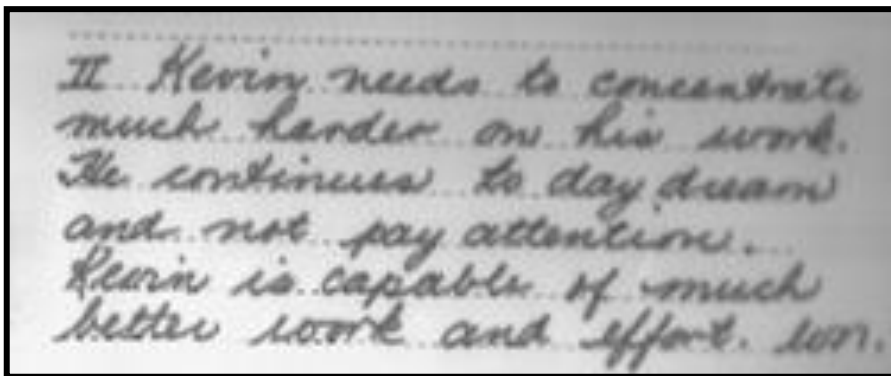 II Kevin needs to concentrate
much harder on his work.
He continues to day dream
and not pay attention.
Kevin is capable of much
better work and effort.